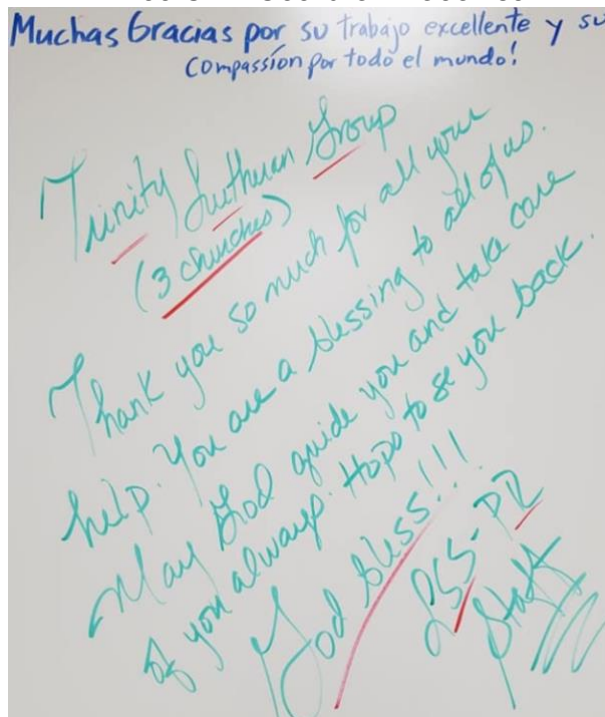 Muchas Gracias por su trabajo excellente y su
compassión por todo el mundo!
Trinity Lutheran Group
(3 churches)
Thank you so much for all your
help. You are a blessing to all of us.
May God guide you and take care
of you always. Hope to se you back.
God bless!!!
LSS-PR
Staff